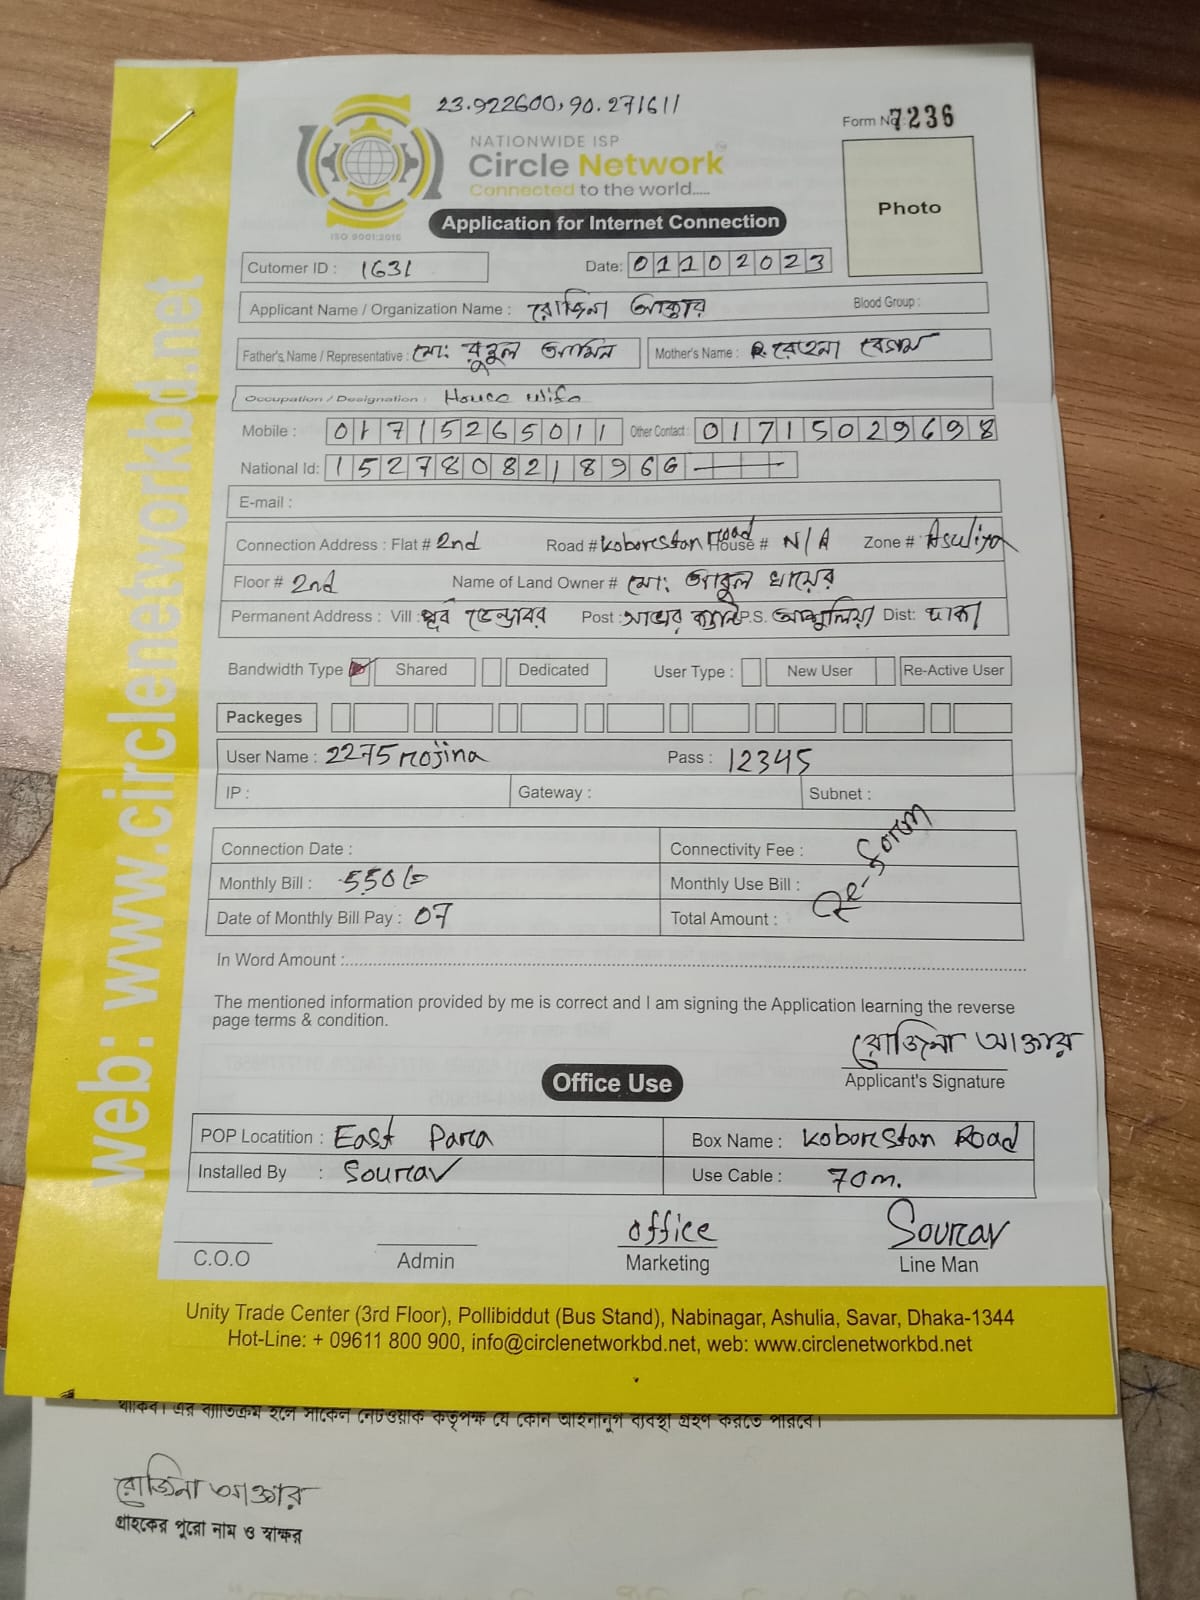 23.922600,90.271611
Form No: 7236
NATIONWIDE ISP
Circle Network
Connected to the world.....
ISO 9001:2015
Application for Internet Connection
Photo
Cutomer ID : 1631 Date: 01102023
Applicant Name / Organization Name : রোজিনা আক্তার Blood Group :
Father's Name / Representative : মো: রুহুল আমিন Mother's Name : রেহেনা বেগম
Occupation / Designation : House wife
Mobile : 01715265011 Other Contact : 01715029698
National Id: 1527808218966
E-mail :
Connection Address : Flat # 2nd Road # Koborestan Road House # N/A Zone # Asuliya
Floor # 2nd Name of Land Owner # মো: আবুল খায়ের
Permanent Address : Vill : পূর্ব ডেন্ডাবর Post : সাভার ক্যান্ট P.S. আশুলিয়া Dist: ঢাকা
Bandwidth Type Shared Dedicated User Type : New User Re-Active User
Packeges
User Name : 2275rojina Pass : 12345
IP : Gateway : Subnet :
Connection Date : Connectivity Fee :
Monthly Bill : 550/= Monthly Use Bill :
Re-form
Date of Monthly Bill Pay : 07 Total Amount :
In Word Amount :
The mentioned information provided by me is correct and I am signing the Application learning the reverse
page terms & condition.
রোজিনা আক্তার
Applicant's Signature
Office Use
POP Locatition : East Para Box Name : Koborestan Road
Installed By : Sourav Use Cable : 70m.
office Sourav
C.O.O Admin Marketing Line Man
Unity Trade Center (3rd Floor), Pollibiddut (Bus Stand), Nabinagar, Ashulia, Savar, Dhaka-1344
Hot-Line: + 09611 800 900, info@circlenetworkbd.net, web: www.circlenetworkbd.net
web: www.circlenetworkbd.net
থাকিব। এর ব্যতিক্রম হলে সার্কেল নেটওয়ার্ক কর্তৃপক্ষ যে কোন আইনানুগ ব্যবস্থা গ্রহণ করতে পারবে।
রোজিনা আক্তার
গ্রাহকের পুরো নাম ও স্বাক্ষর